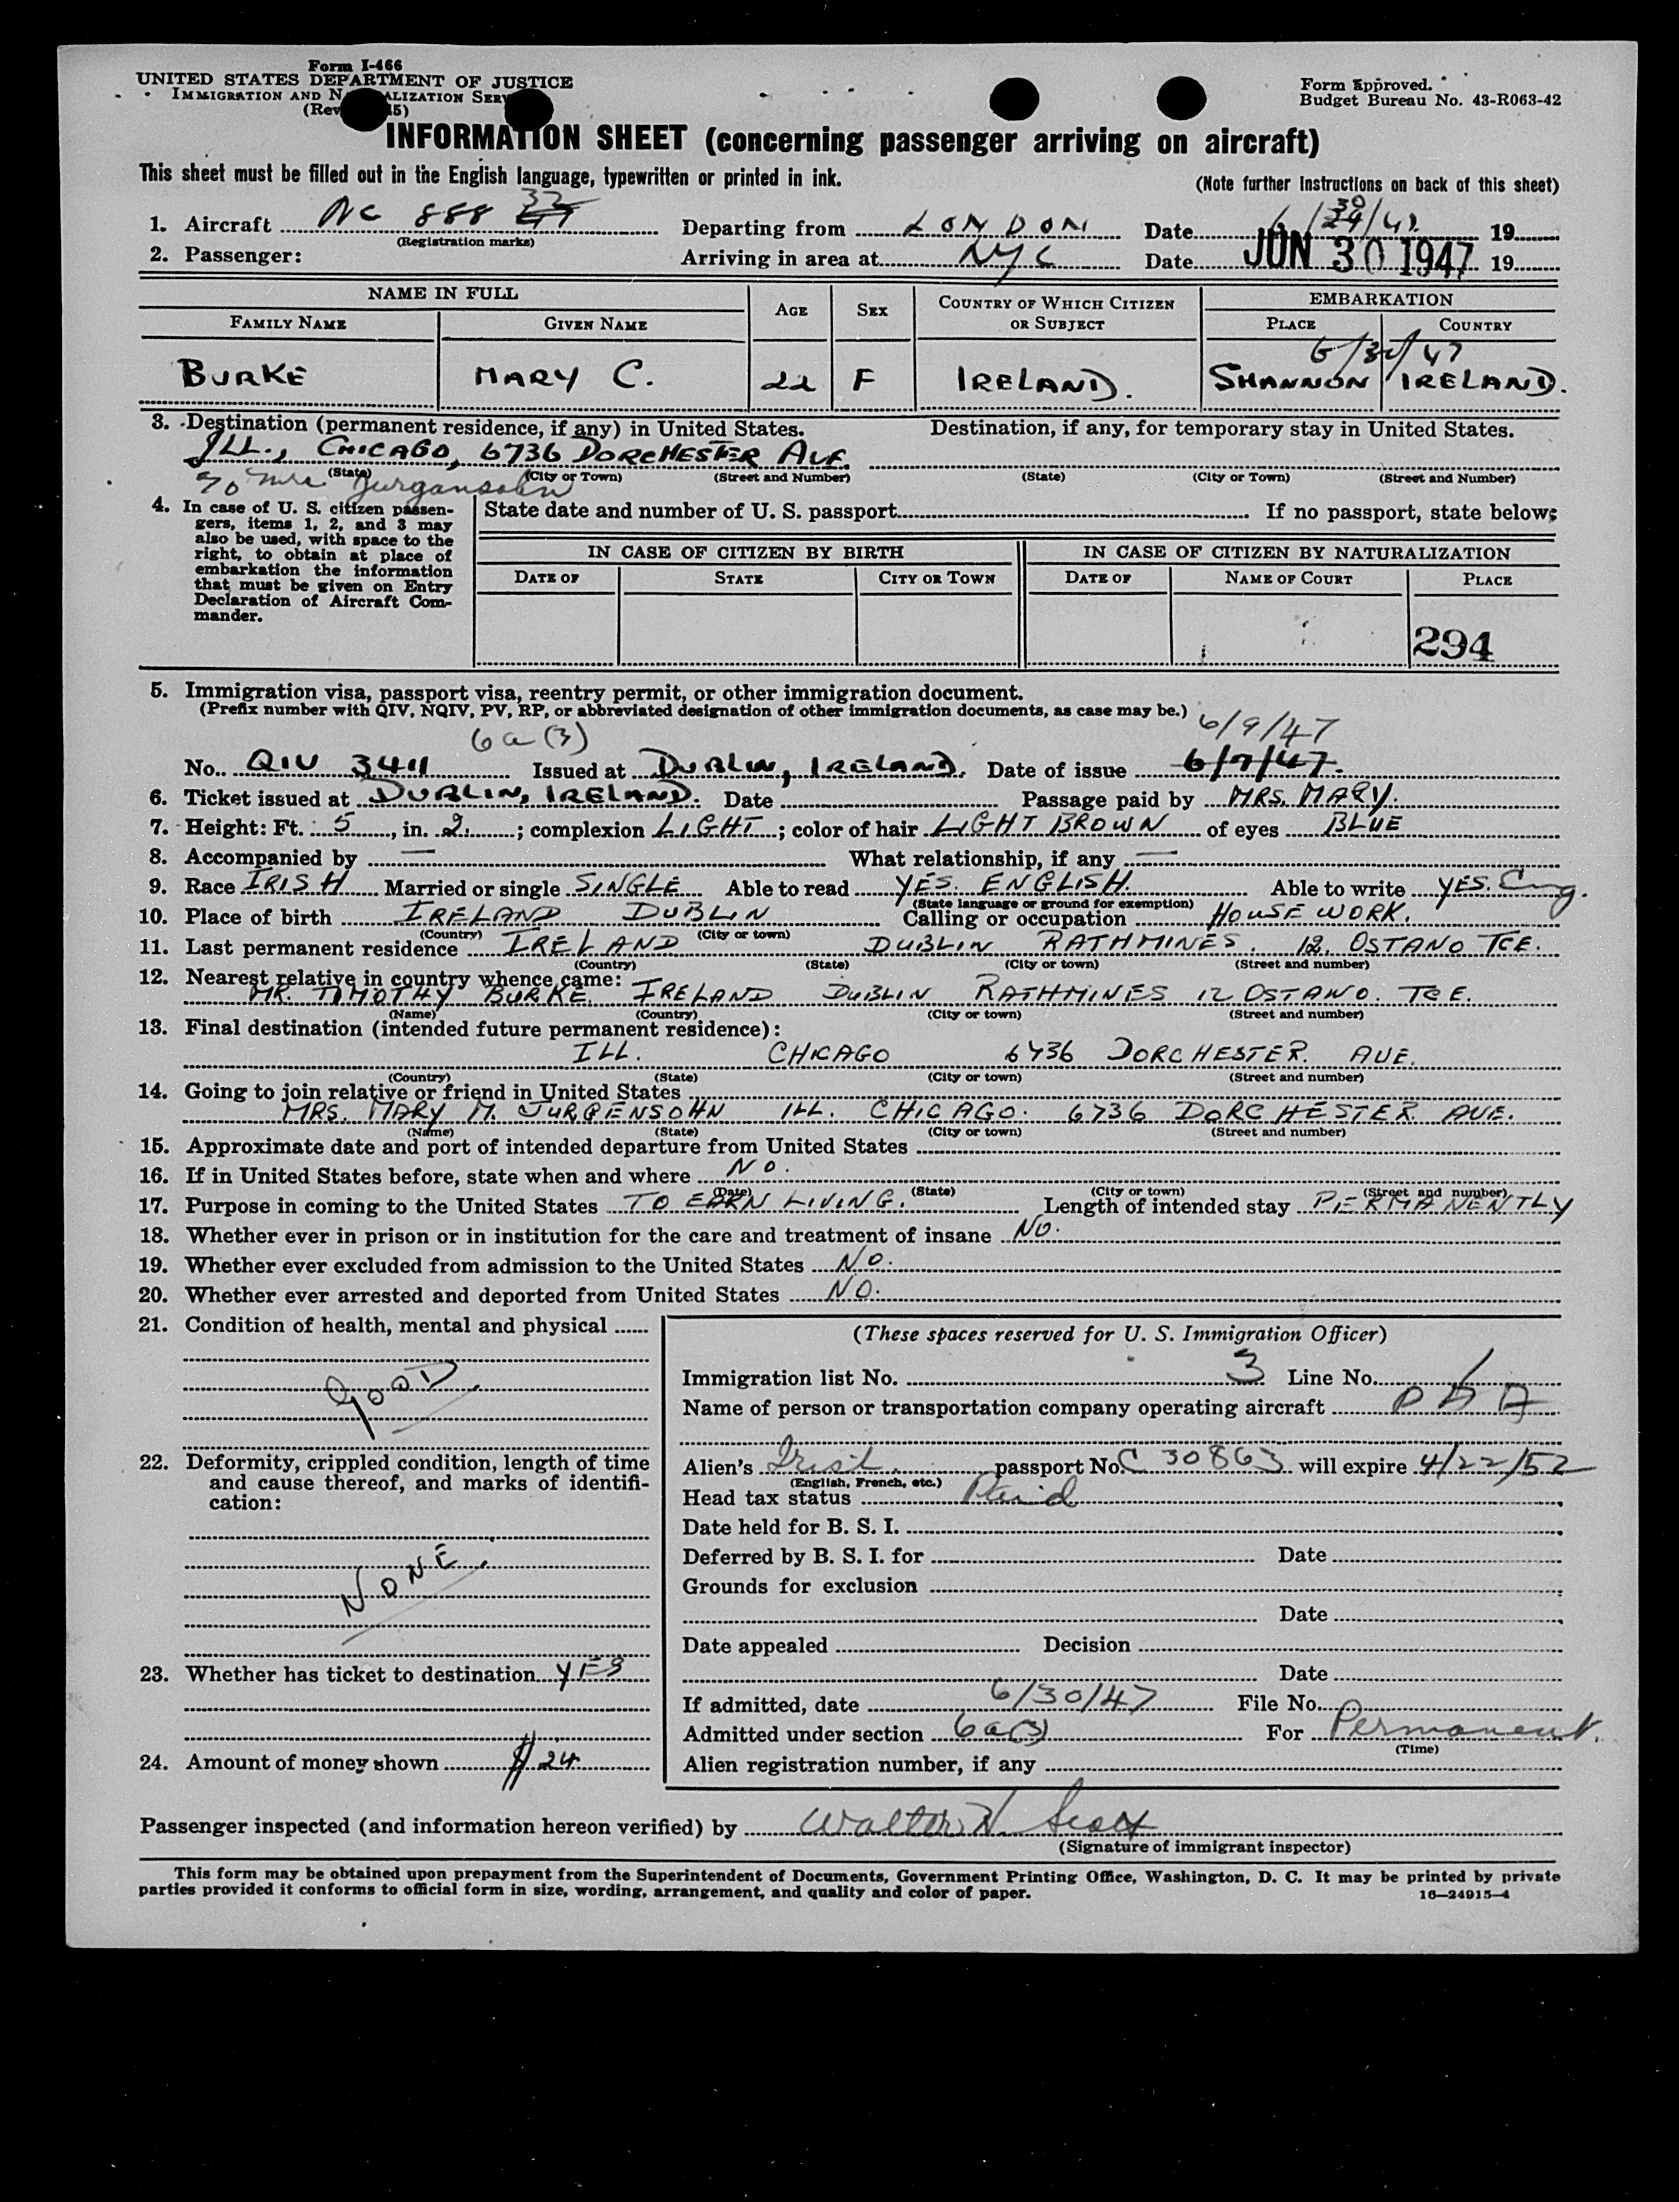 Form I-466
UNITED STATES DEPARTMENT OF JUSTICE
IMMIGRATION AND NATURALIZATION SERVICE
Form approved.
Budget Bureau No. 43-R063-42
INFORMATION SHEET (concerning passenger arriving on aircraft)
This sheet must be filled out in the English language, typewritten or printed in ink.
(Note further instructions on back of this sheet)
1. Aircraft NC 888 32 Departing from LONDON Date 6/30/47 19
(Registration marks)
2. Passenger: Arriving in area at NYC Date JUN 30 1947 19
NAME IN FULL AGE SEX COUNTRY OF WHICH CITIZEN OR SUBJECT EMBARKATION
FAMILY NAME GIVEN NAME PLACE COUNTRY
6/30/47
BURKE MARY C. 22 F IRELAND. SHANNON IRELAND.
3. Destination (permanent residence, if any) in United States. Destination, if any, for temporary stay in United States.
ILL., CHICAGO, 6736 DORCHESTER AVE.
(State) (City or Town) (Street and Number) (State) (City or Town) (Street and Number)
c/o Mrs Jurgansohn
4. In case of U. S. citizen passengers, items 1, 2, and 3 may also be used, with space to the right, to obtain at place of embarkation the information that must be given on Entry Declaration of Aircraft Commander.
State date and number of U. S. passport If no passport, state below:
IN CASE OF CITIZEN BY BIRTH IN CASE OF CITIZEN BY NATURALIZATION
DATE OF STATE CITY OR TOWN DATE OF NAME OF COURT PLACE
294
5. Immigration visa, passport visa, reentry permit, or other immigration document.
(Prefix number with QIV, NQIV, PV, RP, or abbreviated designation of other immigration documents, as case may be.)
6a(3) 6/9/47
No. QIV 3411 Issued at DUBLIN, IRELAND. Date of issue 6/9/47.
6. Ticket issued at DUBLIN, IRELAND. Date Passage paid by MRS. MARY.
7. Height: Ft. 5, in. 2; complexion LIGHT; color of hair LIGHT BROWN of eyes BLUE
8. Accompanied by — What relationship, if any —
9. Race IRISH Married or single SINGLE Able to read YES. ENGLISH. Able to write YES. Eng.
(State language or ground for exemption)
10. Place of birth IRELAND DUBLIN Calling or occupation HOUSE WORK.
(Country) (City or town)
11. Last permanent residence IRELAND DUBLIN RATHMINES. 12, OSTANO TCE.
(Country) (State) (City or town) (Street and number)
12. Nearest relative in country whence came:
MR. TIMOTHY BURKE. IRELAND DUBLIN RATHMINES 12 OSTANO. TCE.
(Name) (Country) (City or town) (Street and number)
13. Final destination (intended future permanent residence):
ILL. CHICAGO 6736 DORCHESTER. AVE.
(Country) (State) (City or town) (Street and number)
14. Going to join relative or friend in United States
MRS. MARY M. JURGENSOHN ILL. CHICAGO. 6736 DORCHESTER AVE.
(Name) (State) (City or town) (Street and number)
15. Approximate date and port of intended departure from United States
16. If in United States before, state when and where NO.
(Date) (State) (City or town) (Street and number)
17. Purpose in coming to the United States TO EARN LIVING. Length of intended stay PERMANENTLY
18. Whether ever in prison or in institution for the care and treatment of insane NO.
19. Whether ever excluded from admission to the United States NO.
20. Whether ever arrested and deported from United States NO.
21. Condition of health, mental and physical
GOOD.
22. Deformity, crippled condition, length of time and cause thereof, and marks of identification:
NONE.
23. Whether has ticket to destination YES
24. Amount of money shown $24.
(These spaces reserved for U. S. Immigration Officer)
Immigration list No. 3 Line No. 1
Name of person or transportation company operating aircraft PAA
Alien's Irish passport No. C 30863 will expire 4/22/52
(English, French, etc.)
Head tax status Paid
Date held for B. S. I.
Deferred by B. S. I. for Date
Grounds for exclusion
Date
Date appealed Decision
Date
If admitted, date 6/30/47 File No.
Admitted under section 6a(3) For Permanent.
(Time)
Alien registration number, if any
Passenger inspected (and information hereon verified) by Walter N. Scott
(Signature of immigrant inspector)
This form may be obtained upon prepayment from the Superintendent of Documents, Government Printing Office, Washington, D. C. It may be printed by private
parties provided it conforms to official form in size, wording, arrangement, and quality and color of paper.
16—24915-4